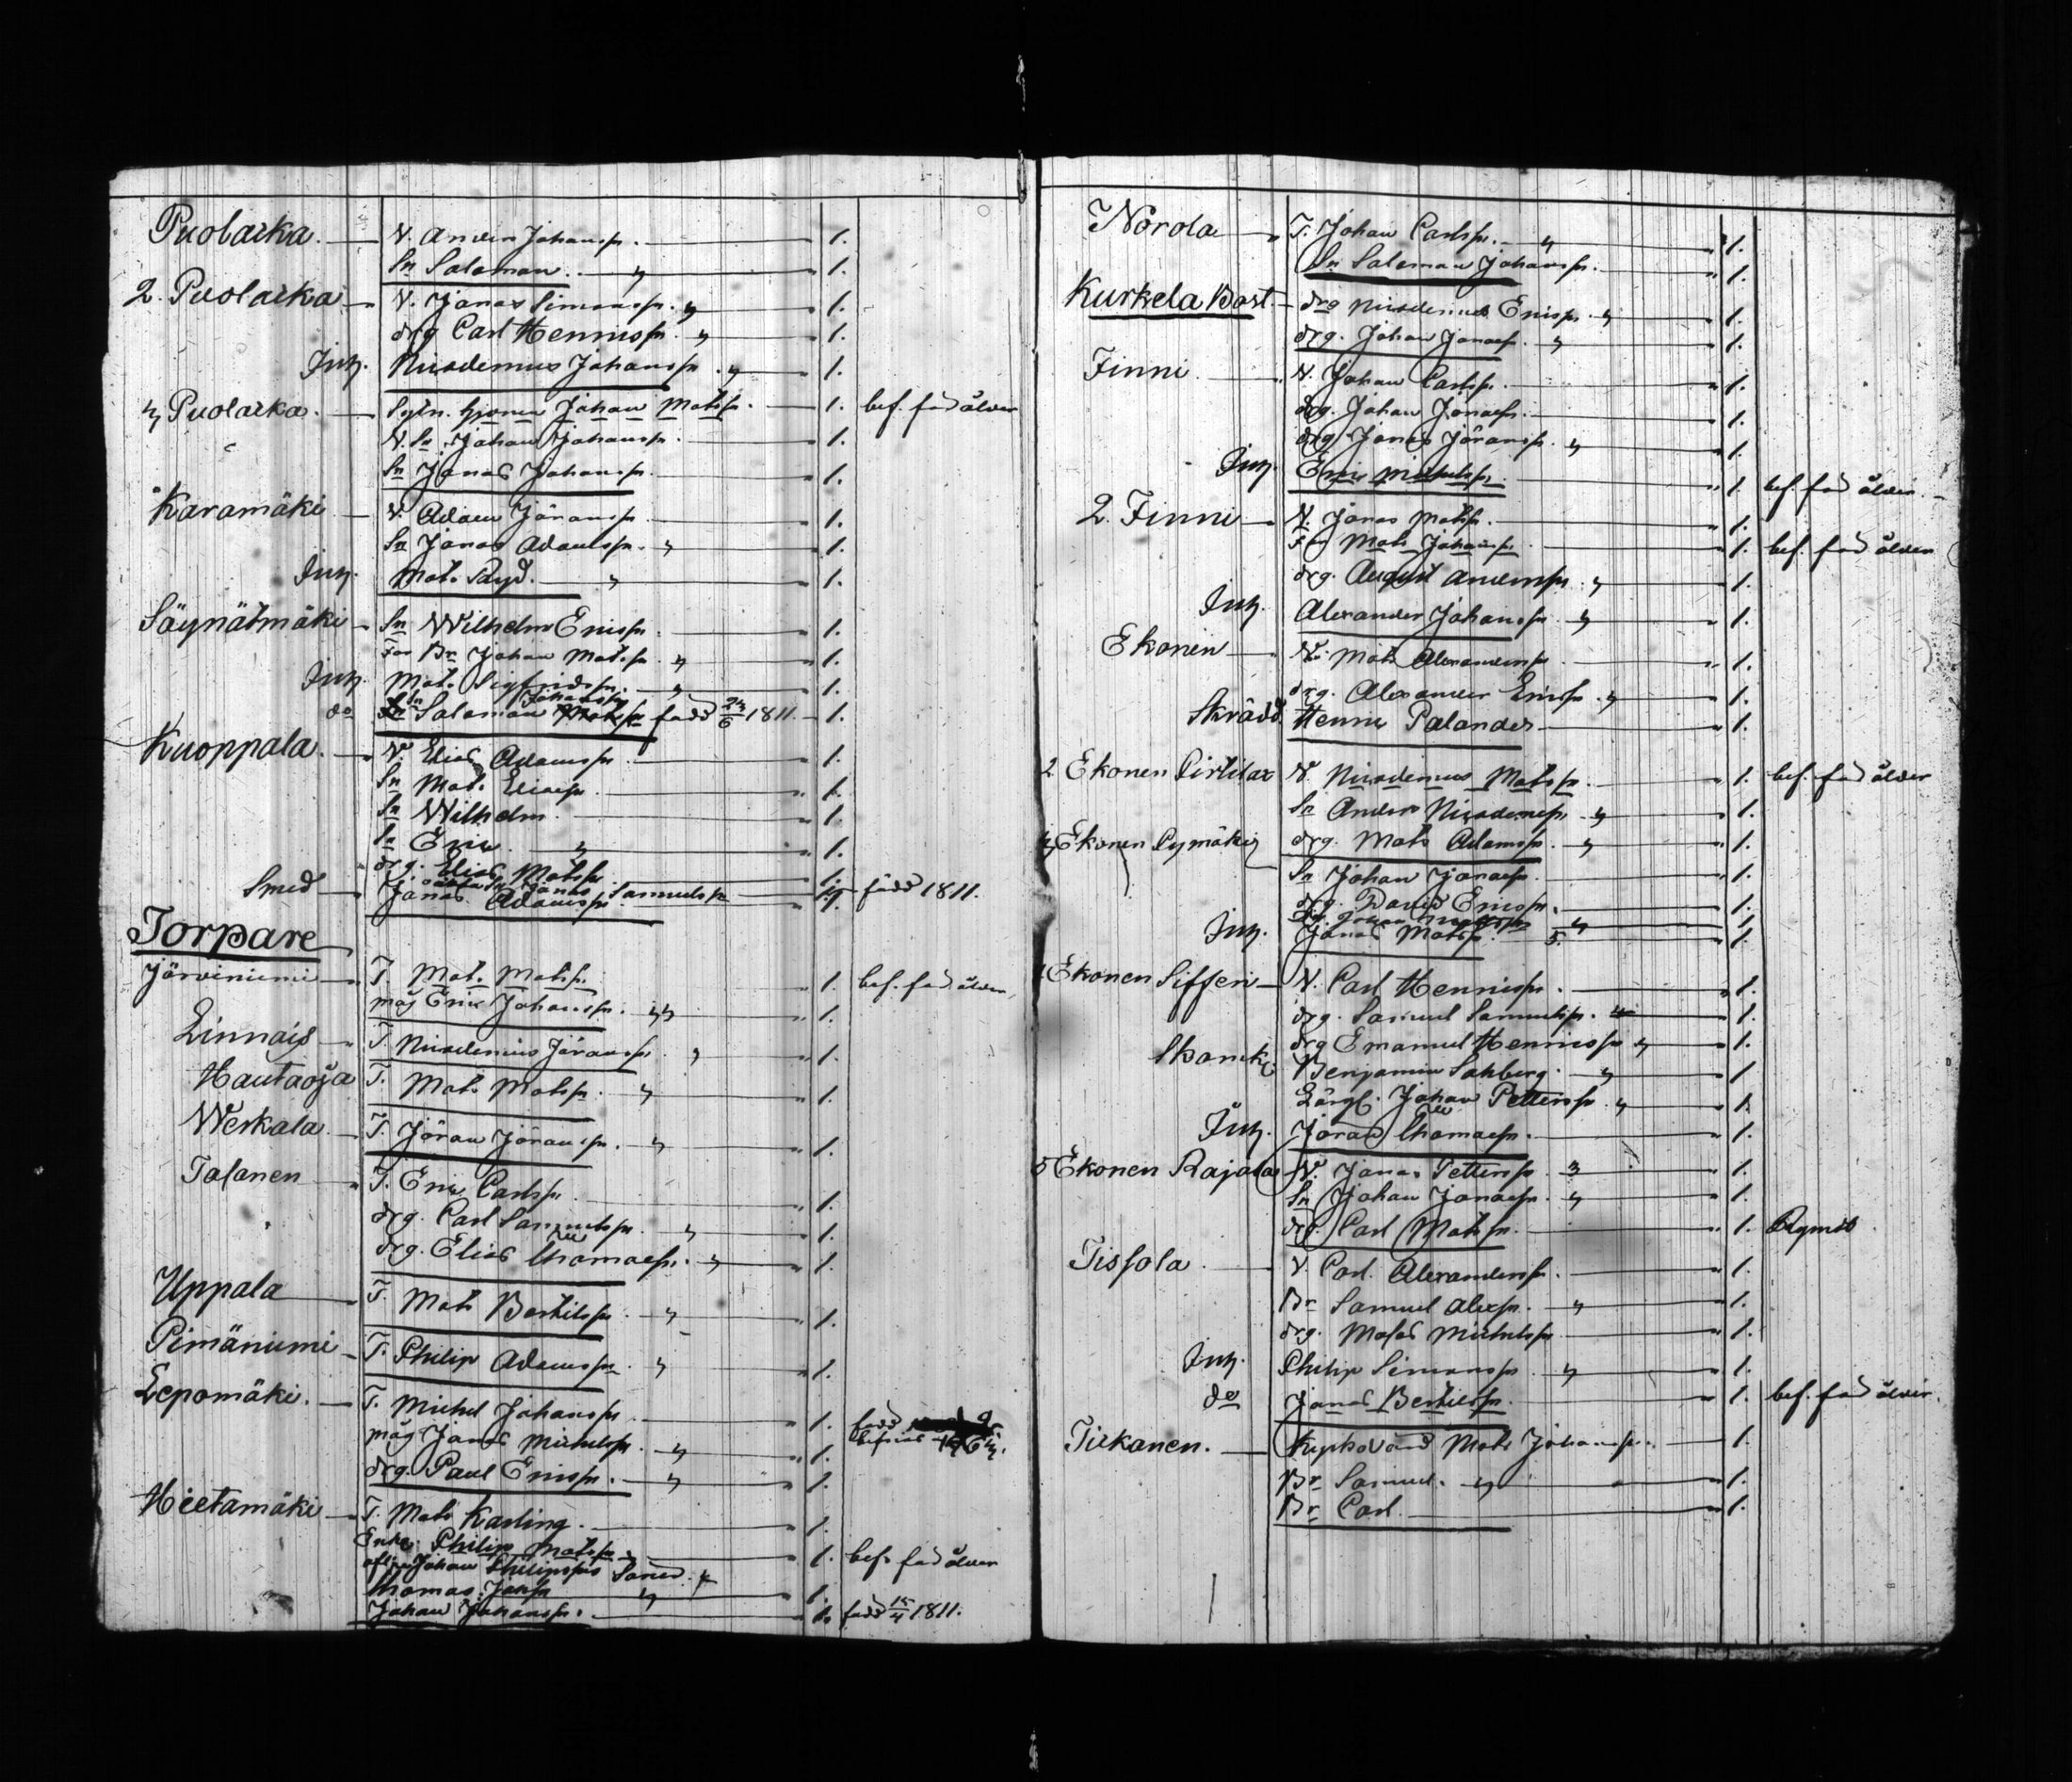 Puolarka. N. Anders Johansn. 1.
Sn Saloman. " 1.
2. Puolarka N. Jonas Simonsn. " 1.
drg Carl Hennicsn. " 1.
Inh. Nicodemus Johansn. " 1.
Puolarka. Johan Matsn. 1. bef. för ålder
N. Sn. Johan Johansn. 1.
Sn Jonas Johansn. 1.
Karamäki N. Adam Jöransn. 1.
Sn Jonas Adamsn. " 1.
Inh. Mats " 1.
Säynätmäki Sn Wilhelm Ericsn. 1.
Br Johan Matsn. " 1.
Inh. Mats Sigfridsn. " 1.
do Saloman Johansn född 24/6 1811. 1.
Kuoppala. N. Elias Adamsn. 1.
Sn Mats Eliaesn. 1.
Sn Wilhelm 1.
Sn Eric " 1.
drg. Elias Matsn 1.
Samuelsn född 1811.
Smed Jonas Adamsn 1.
Torpare
Järviniemi T. Mats Matsn. 1. bef. för ålder
måg Eric Johansn. " 1.
Linnais T. Nicodemus Jöransn. " 1.
Hautaoja T. Mats Matsn. " 1.
Werkala. T. Jöran Jöransn. " 1.
Talanen T. Eric Carlsn. 1.
drg. Carl Samuelsn " 1.
drg. Elias Thomaesn. " 1.
Uppala T. Mats Bertilsn. " 1.
Pimäniemi T. Philip Adamsn. " 1.
Lepomäki. T. Michel Johansn. 1.
måg Jonas Michelsn. " 1.
drg. Paul Ericsn. " 1.
Hietamäki T. Mats Karling. 1.
Enkl. Philip Matsn 1. bef. för ålder
Johan Philipsn
Thomas " 1.
Johan Johansn. 1. född 15/4 1811.
Norola T. Johan Carlsn. " 1.
Sn Saloman Johansn. 1.
Kurkela Bost. drg Nicodemus Ericsn. " 1.
drg. Johan Jonaesn. " 1.
Finni N. Johan Carlsn. 1.
drg. Johan Jonaesn. 1.
drg. Jonas Jöransn. " 1.
Inh. Eric Michelsn. 1. bef. för ålder.
2. Finni N. Jonas Matsn. 1.
Far Mats Johansn 1. bef. för ålder
drg. August Andersn. " 1.
Inh. Alexander Johansn " 1.
Ekonen N. Mats Alexandersn. 1.
drg. Alexander Ericsn. " 1.
Skrädd. Henric Palander 1.
2 Ekonen Pirtilax N. Nicodemus Matsn 1. bef. för ålder
Sn Anders Nicodemesn. " 1.
drg. Mats Adamsn. " 1.
Ekonen Pymäki Sn Johan Jonaesn. 1.
drg. David Ericsn. 1.
Inh. Jonas Matsn. 1.
Ekonen Siffen N. Carl Hennicsn. 1.
drg. Samuel Samuelsn. 1.
drg Emanuel Hennicsn " 1.
Benjamin Sahberg. " 1.
Johan Pettersn. " 1.
Inh. Jöran Thomaesn. 1.
5 Ekonen Rajala N. Jonas Pettersn. 1.
Sn Johan Jonaesn. " 1.
drg. Carl Matsn. 1. Rymd
Tissola N. Carl Alexandersn. 1.
Br Samuel Alexsn. " 1.
drg. Moses Michelsn 1.
Inh. Philip Simonsn. " 1.
do Jonas Bertilsn. 1. bef. för ålder.
Tilkanen. Kyrkovärd Mats Johansn. 1.
Br Samuel. " 1.
Br Carl. 1.